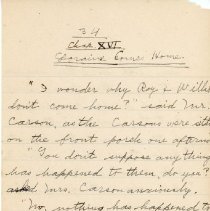 34
Chap XVI
Come Home.
"I wonder why Roy & Willie
don't come home?" said Mr.
Carson, as the Carsons were sitt
on the front porch one aftern
"You don't suppose anything
has happened to them, do you?"
asked Mrs. Carson anxiously.
"No, nothing has happened to